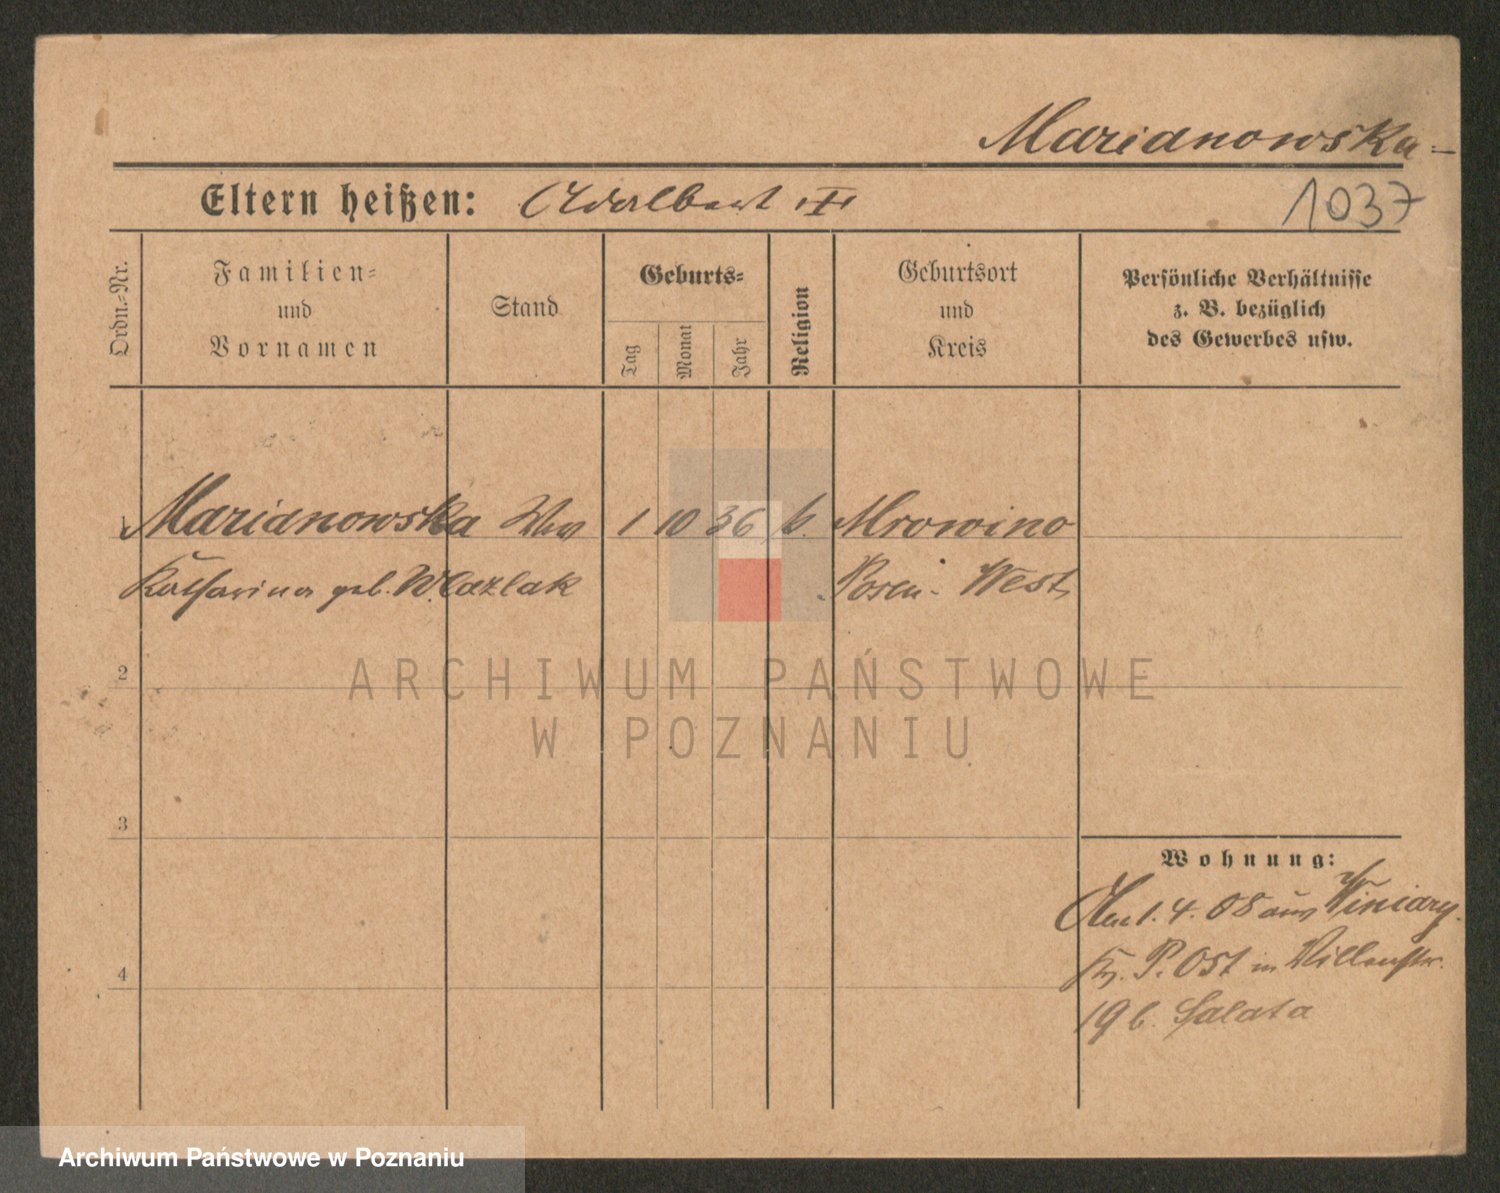 Marianowska
Eltern heißen: Adalbert
1037
Ordn.-Nr.
Familien-
und
Vornamen
Stand
Geburts-
Tag
Monat
Jahr
Religion
Geburtsort
und
Kreis
Persönliche Verhältnisse
z. B. bezüglich
des Gewerbes usw.
1 Marianowska Wwe 1 10 36 k. Mrowino
Katharina geb. Wlazlak Posen-West
2
3
4
Wohnung:
Am 1.4.08 aus Winiary
Kr. P. Ost in Villenstr.
19 b. Salata
ARCHIWUM PAŃSTWOWE
W POZNANIU
Archiwum Państwowe w Poznaniu